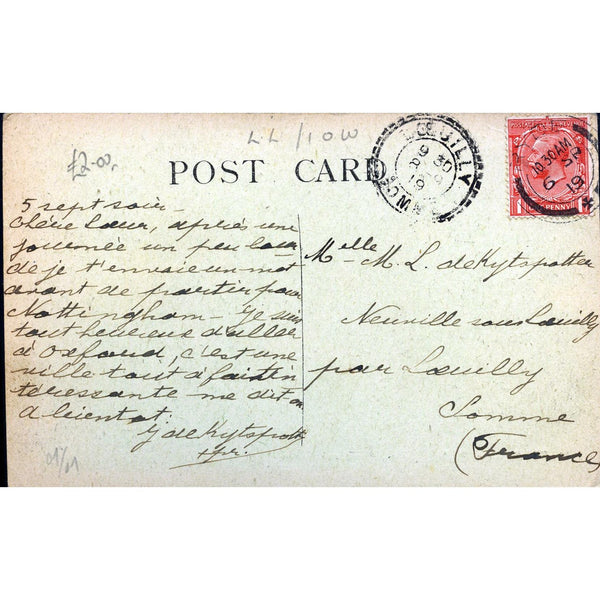 LL/IOW
£2-00
POST CARD
LŒUILLY
9 30
19
10.30AM
6
19
5 sept soir -
Chère Sœur, après une
journée un peu lour
de je t'envoie un mot
avant de partir pour
Nottingham - Je suis
tout heureux d'aller
à Oxford, c'est une
ville tout à fait in
téressante me dit on
A bientot.
G de Kytspotter
Melle M. L. de Kytspotter
Neuville sous Lœuilly
par Lœuilly
Somme
(France)